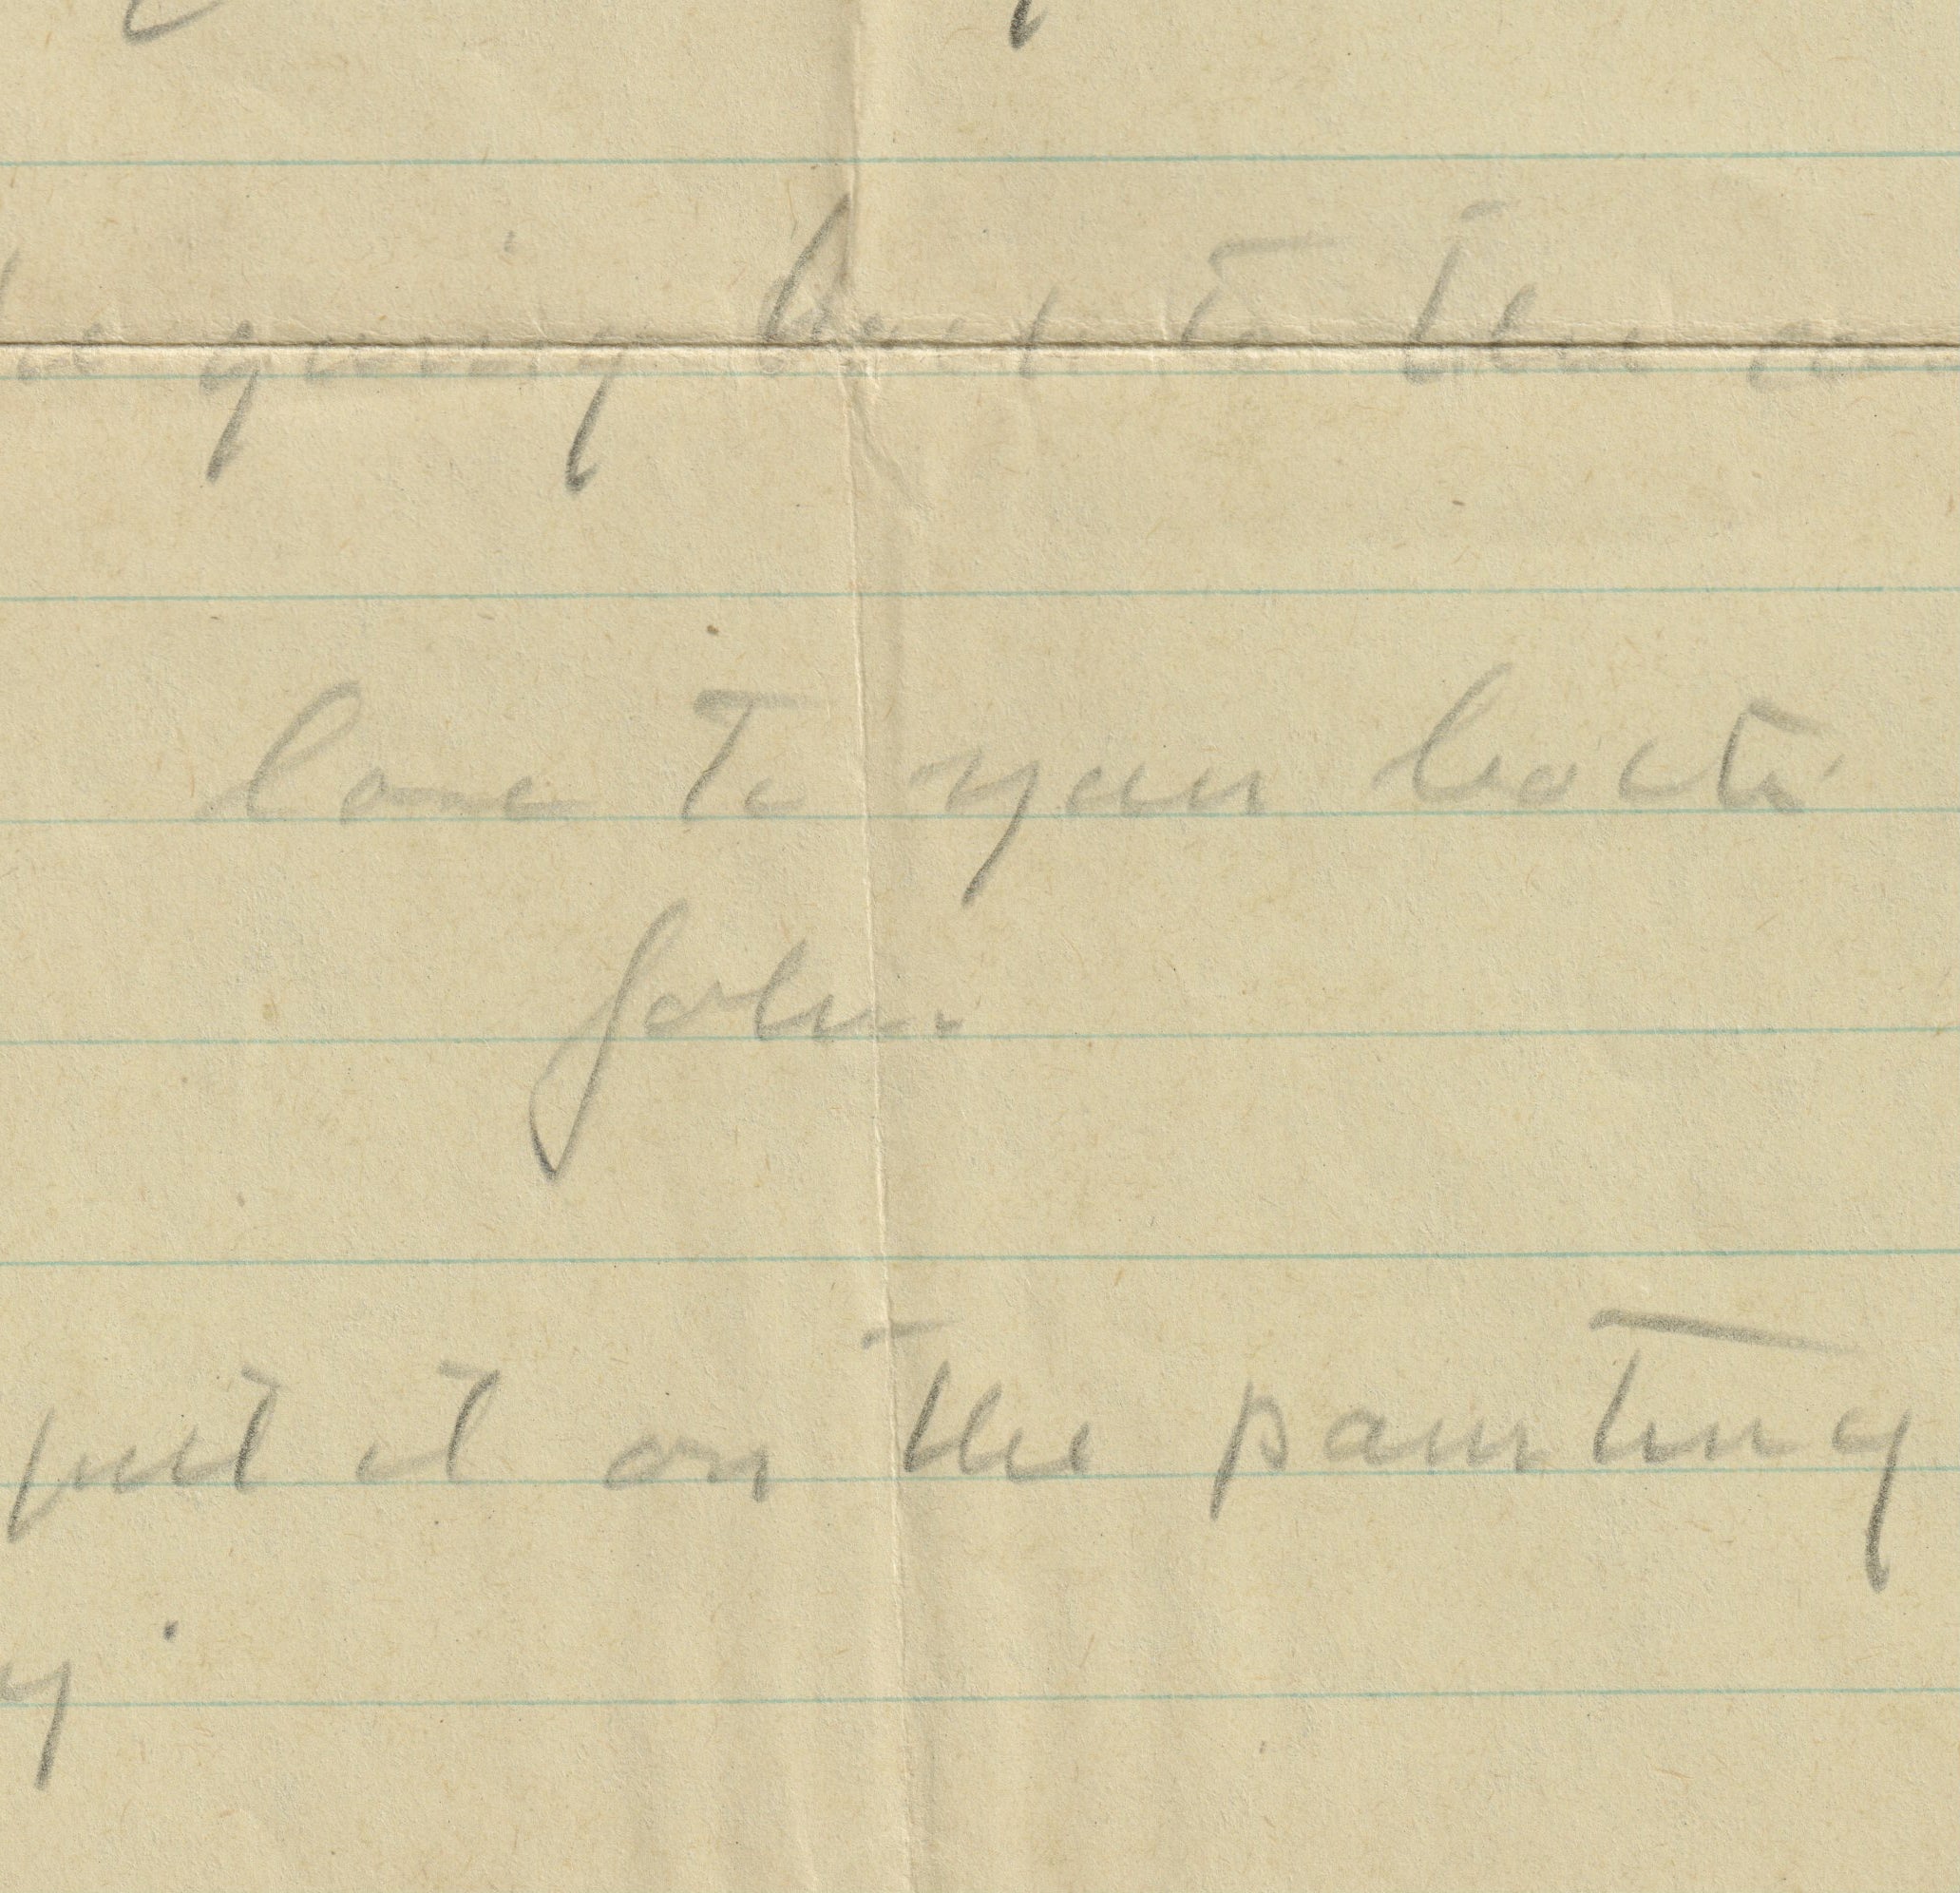 going back to the
love to you both
John.
put it on the painting